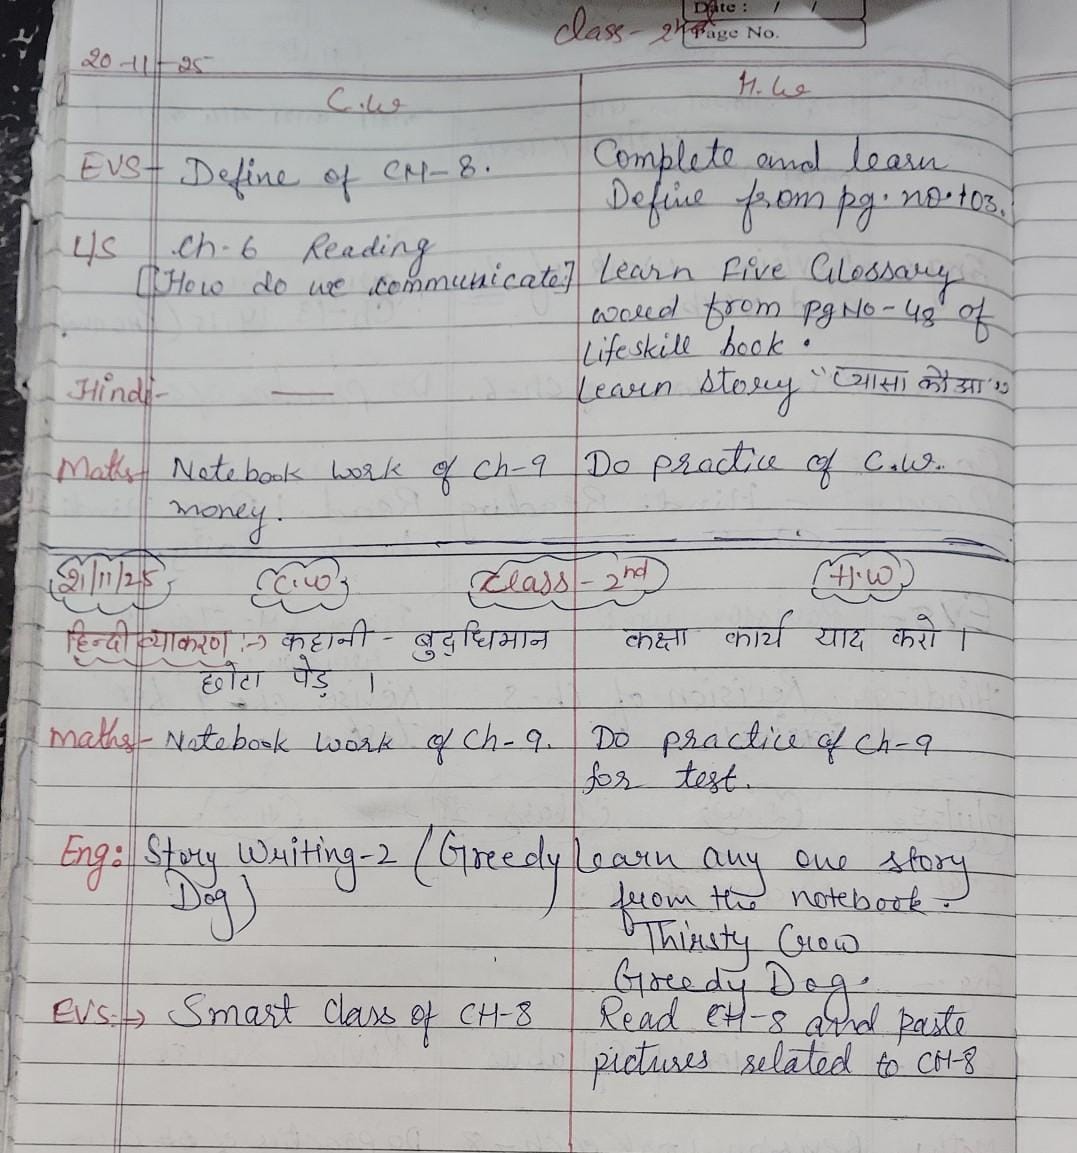 Date : / /
class- 2nd Page No.
20-11-25
C.W H.W
EVS- Define of CH-8. Complete and learn
Define from pg. no. 103.
L/S Ch-6 Reading
[How do we communicate] Learn Five Glossary
word from pg No-48 of
Lifeskill book.
Hindi- — Learn story "प्यासा कौआ"
Maths- Notebook work of Ch-9 Do practice of C.W.
money.
21/11/25 C.W Class-2nd H.W
हिन्दी व्याकरण :-> कहानी - बुद्धिमान कक्षा कार्य याद करो ।
छोटा पेड़ ।
Maths- Notebook work of Ch-9. Do practice of Ch-9
for test.
Eng: Story Writing-2 (Greedy Learn any one story
Dog) from the notebook.
Thirsty Crow
Greedy Dog.
EVS:-> Smart Class of CH-8 Read CH-8 and paste
pictures related to CH-8